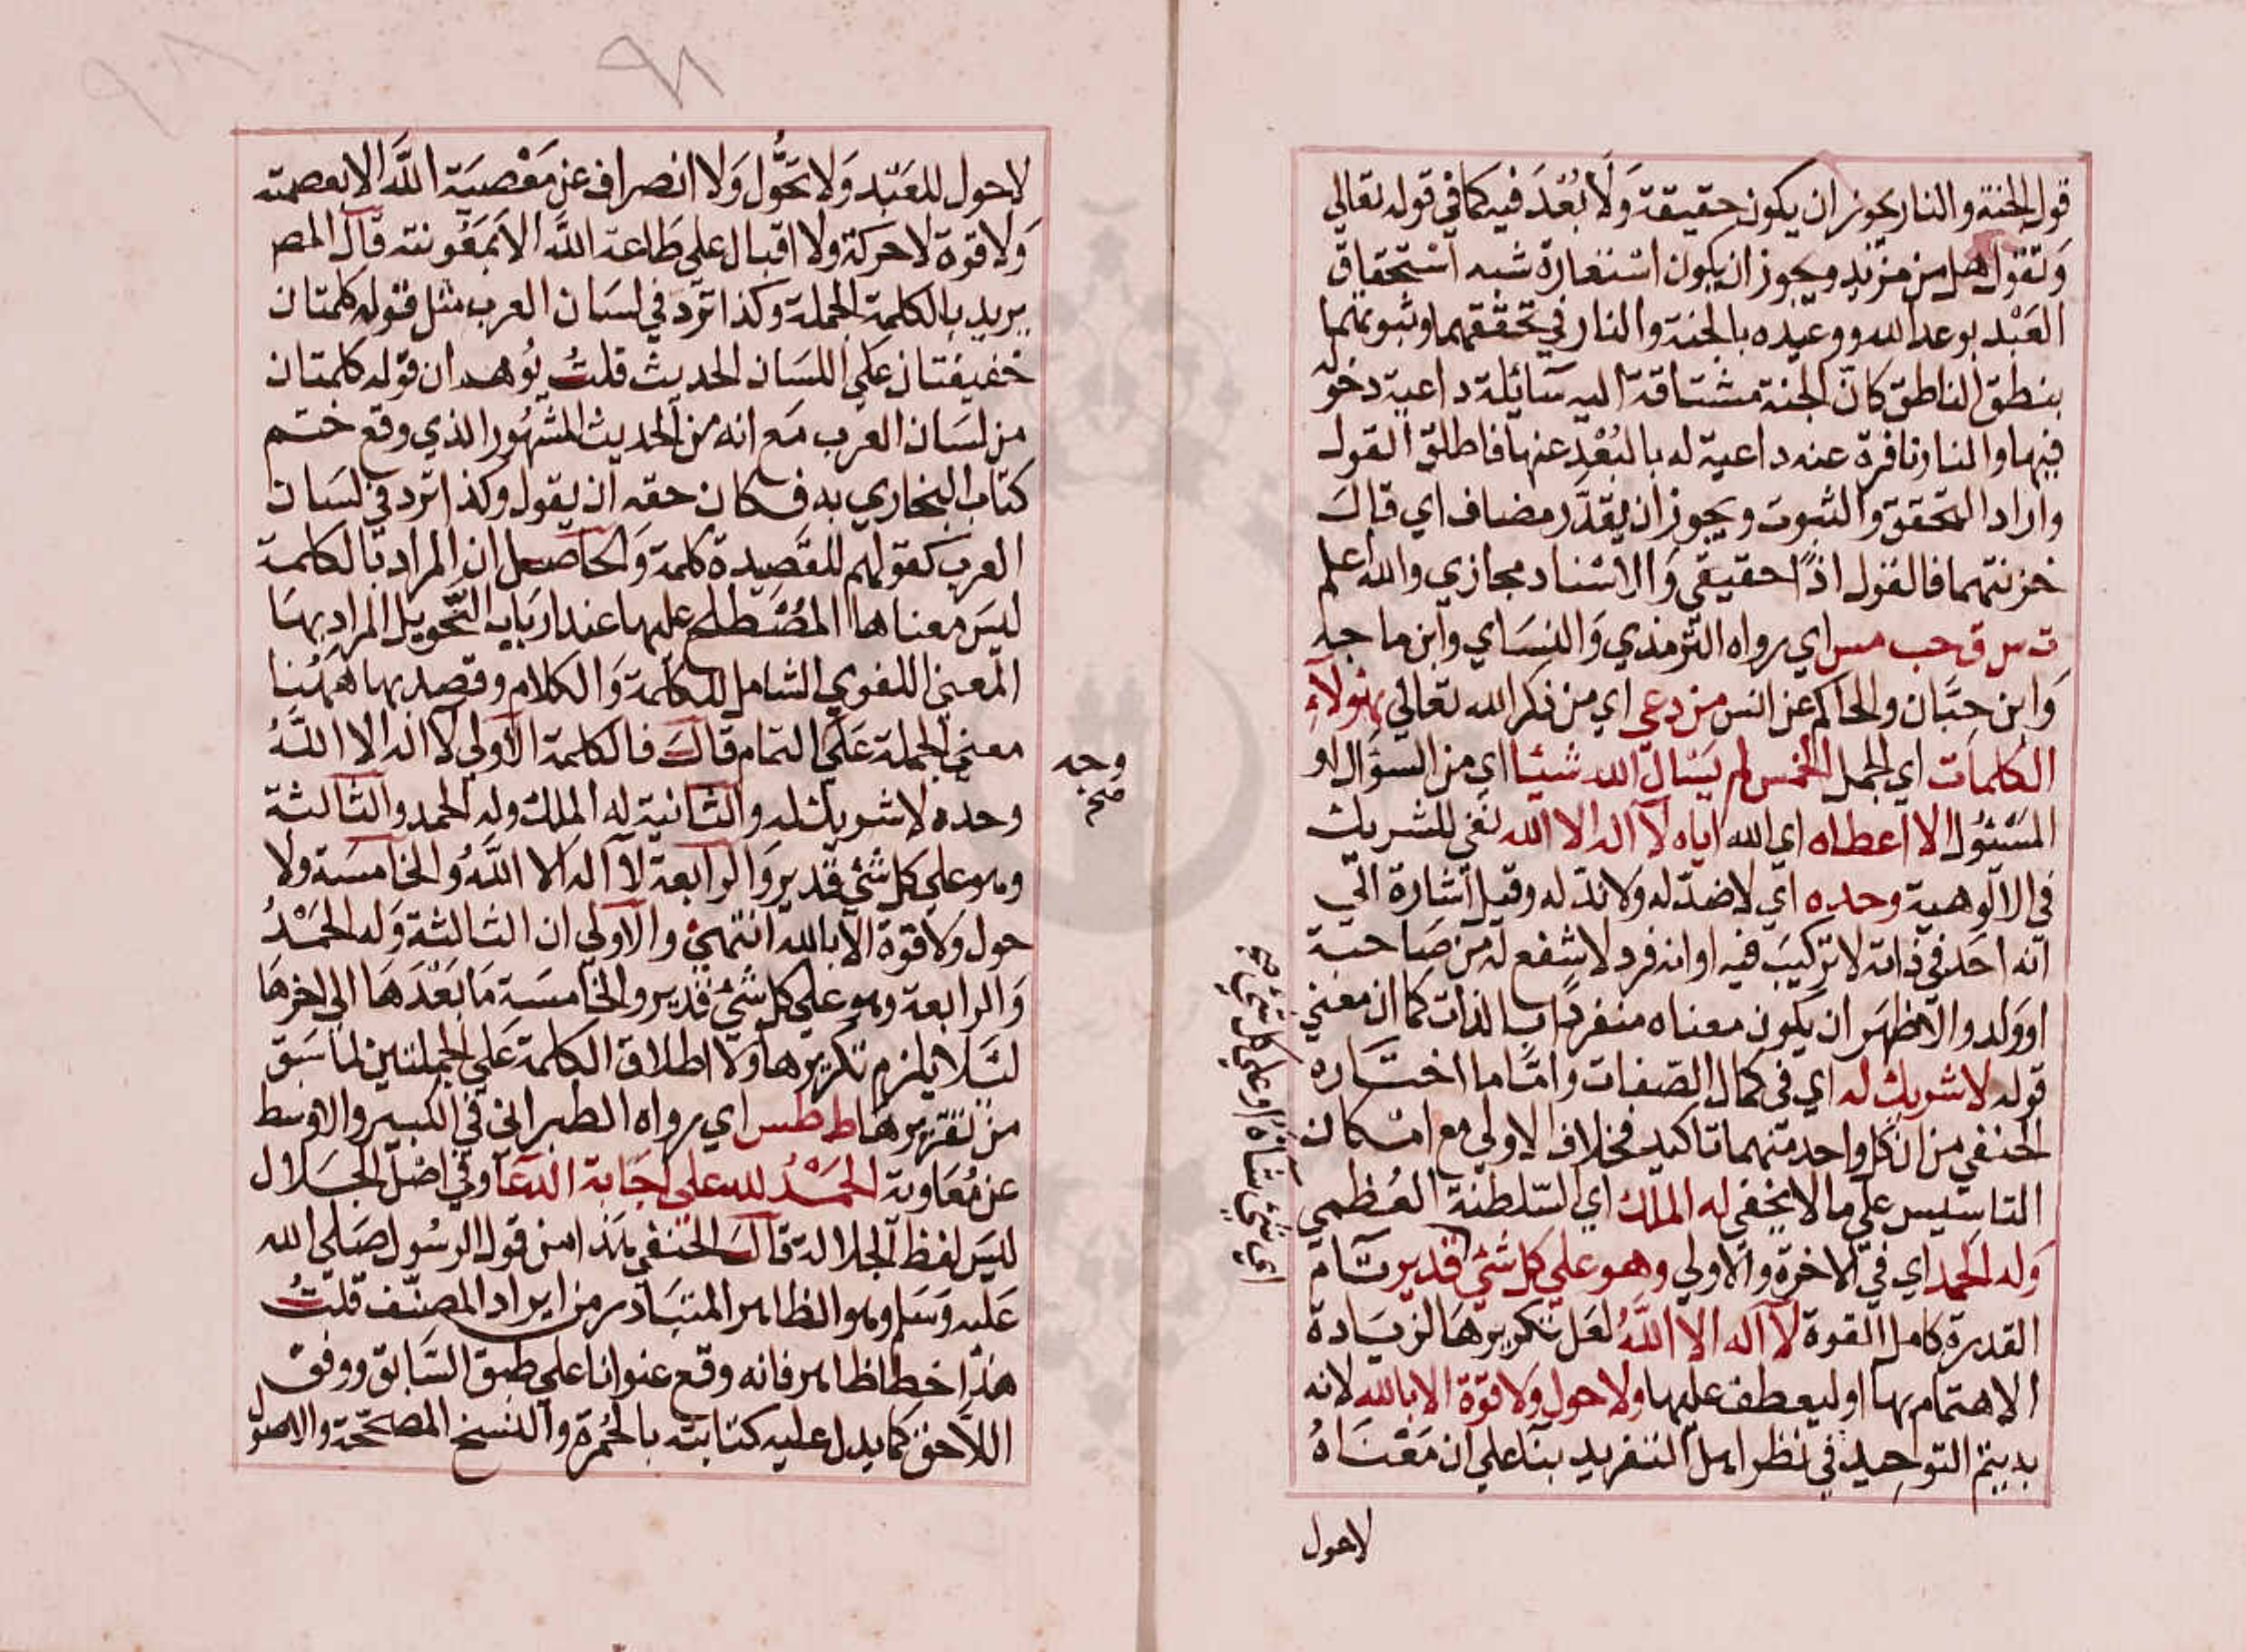 قول الجنة والنار يجوز ان يكون حقيقة ولا بُعْدَ فيه كما في قوله تعالي
وتقول هل من مزيد ويجوز ان يكون استعارة شبه استحقاق
العَبْد بوعد الله ووعيده بالجنة والنار في تحققهما وثبوتهما
بنطق الناطق كانّ الجنة مشتاقة اليه سائلة داعية دخوله
فيها والنار نافرة عنه داعية له بالبُعْدِ عنها فاطلق القول
واراد التحقق والثبوت ويجوز ان يقدَّر مضاف اي قالت
خزنتهما فالقول اذًا حقيقي والاسناد مجازي والله اعلم
ت س ق حب مس اي رواه الترمذي والنسَاي وابن ماجه
وابن حِبَّان والحاكم عن انس من دعي اي من ذكر الله تعالي بهؤلاءِ
الكلمات اي الجمل الخمس لم يسَال الله شيئا اي من السؤال او
المسْئوُل الا اعطاه اي الله اياه لا اله الا الله نفي للشريك
في الالوهية وحده اي لا ضدّ له ولا ندّ له وقيل اشارة الي
انه احَد في ذاته لا تركيبَ فيه او انه فرد لا شفع له من صَاحبة
او ولد والاظهَر ان يكون معناه منفردًا بالذات كما ان معني
قوله لا شريك له اي في كمال الصّفات وامّا ما اختَاره
الحنفي من ان كل واحد منهما تاكيد فخلاف الاولي مع امْكان
التاسيس علي ما لا يخفي له الملك اي السّلطنة العُظمي
وله الحمد اي في الاخرة والاولي وهو علي كل شئي قدير تَام
القدرة كامل القوة لا اله الا اللهُ لعَل تكريرهَا لزيَادة
الاهتمام بها او ليعطف عليها ولا حول ولا قوّة الا بالله لانه
به يتم التوحيد في نظر اهل التفريد بنآ علي ان مَعْنَاهُ
لاحول
اي شئي شاءَهُ او علي كل شئي
لا حول للعَبْد وَلا تحَوُّل وَلا انصراف عن مَعْصيَة اللَّه الا بعصمته
وَلا قوة لا حركة ولا اقبال علي طَاعة اللَّه الا بمَعُونته قال المصـ
يريد بالكلمة الجملة وكذا ترد في لسَان العرب مثل قوله كلمتان
خفيفتان علي اللسَان الحديث قلتُ يُوهم ان قوله كلمتان
من لسَان العرب مَع انه من الحديث المشهُور الذي وقع ختم
كتاب البخاري به فكان حقه ان يقول وكذا ترد في لسَان
العرب كقولهم للقَصِيدة كلمة وَالحاصل ان المراد بالكلمة
ليسَ معناها المصْطلح عليها عند ارباب النّحو بل المراد بهَا
المعني اللغوي الشامل للكلمة وَالكلام وقصد بها ههُنا
معني الجملة عَلي التمام قال فالكلمة الاولي لا اله الا اللَّهُ
وحده لا شريك له والثانية له الملك وله الحمد والثالثة
وهو علي كل شئي قدير وَالرابعة لا اله الا اللَّهُ والخامسَة ولا
حول وَلا قوة الا بالله انتهيٰ والاولي ان الثالثة وَله الحَمْدُ
وَالرابعة وهو علي كل شئي قدير والخامسَة مَا بَعْدَهَا الي اخرهَا
لئلا يلزم تكريرها وَلا اطلاق الكلمة عَلي الجملتين لما سَبق
من تقريرها ط طس اي رواه الطبراني في الكبير والاوسط
عن مُعَاوية الحَمْدُ لله علي اجَابة الدعَا وفي اصْل الجَلال
ليسَ لفظ الجلالة قال الحنفي هَذا من قول الرسُول صَلي الله
عَليه وَسَلم وهو الظاهر المتبَادر من ايراد المصنّف قلتُ
هذا خطا ظاهر فانه وقع عنوانا علي طبق السَّابق ووفق
اللّاحق كما يدل عليه كتابته بالحُمرة والنسخ المصححَّة والاصول
وجه
صح